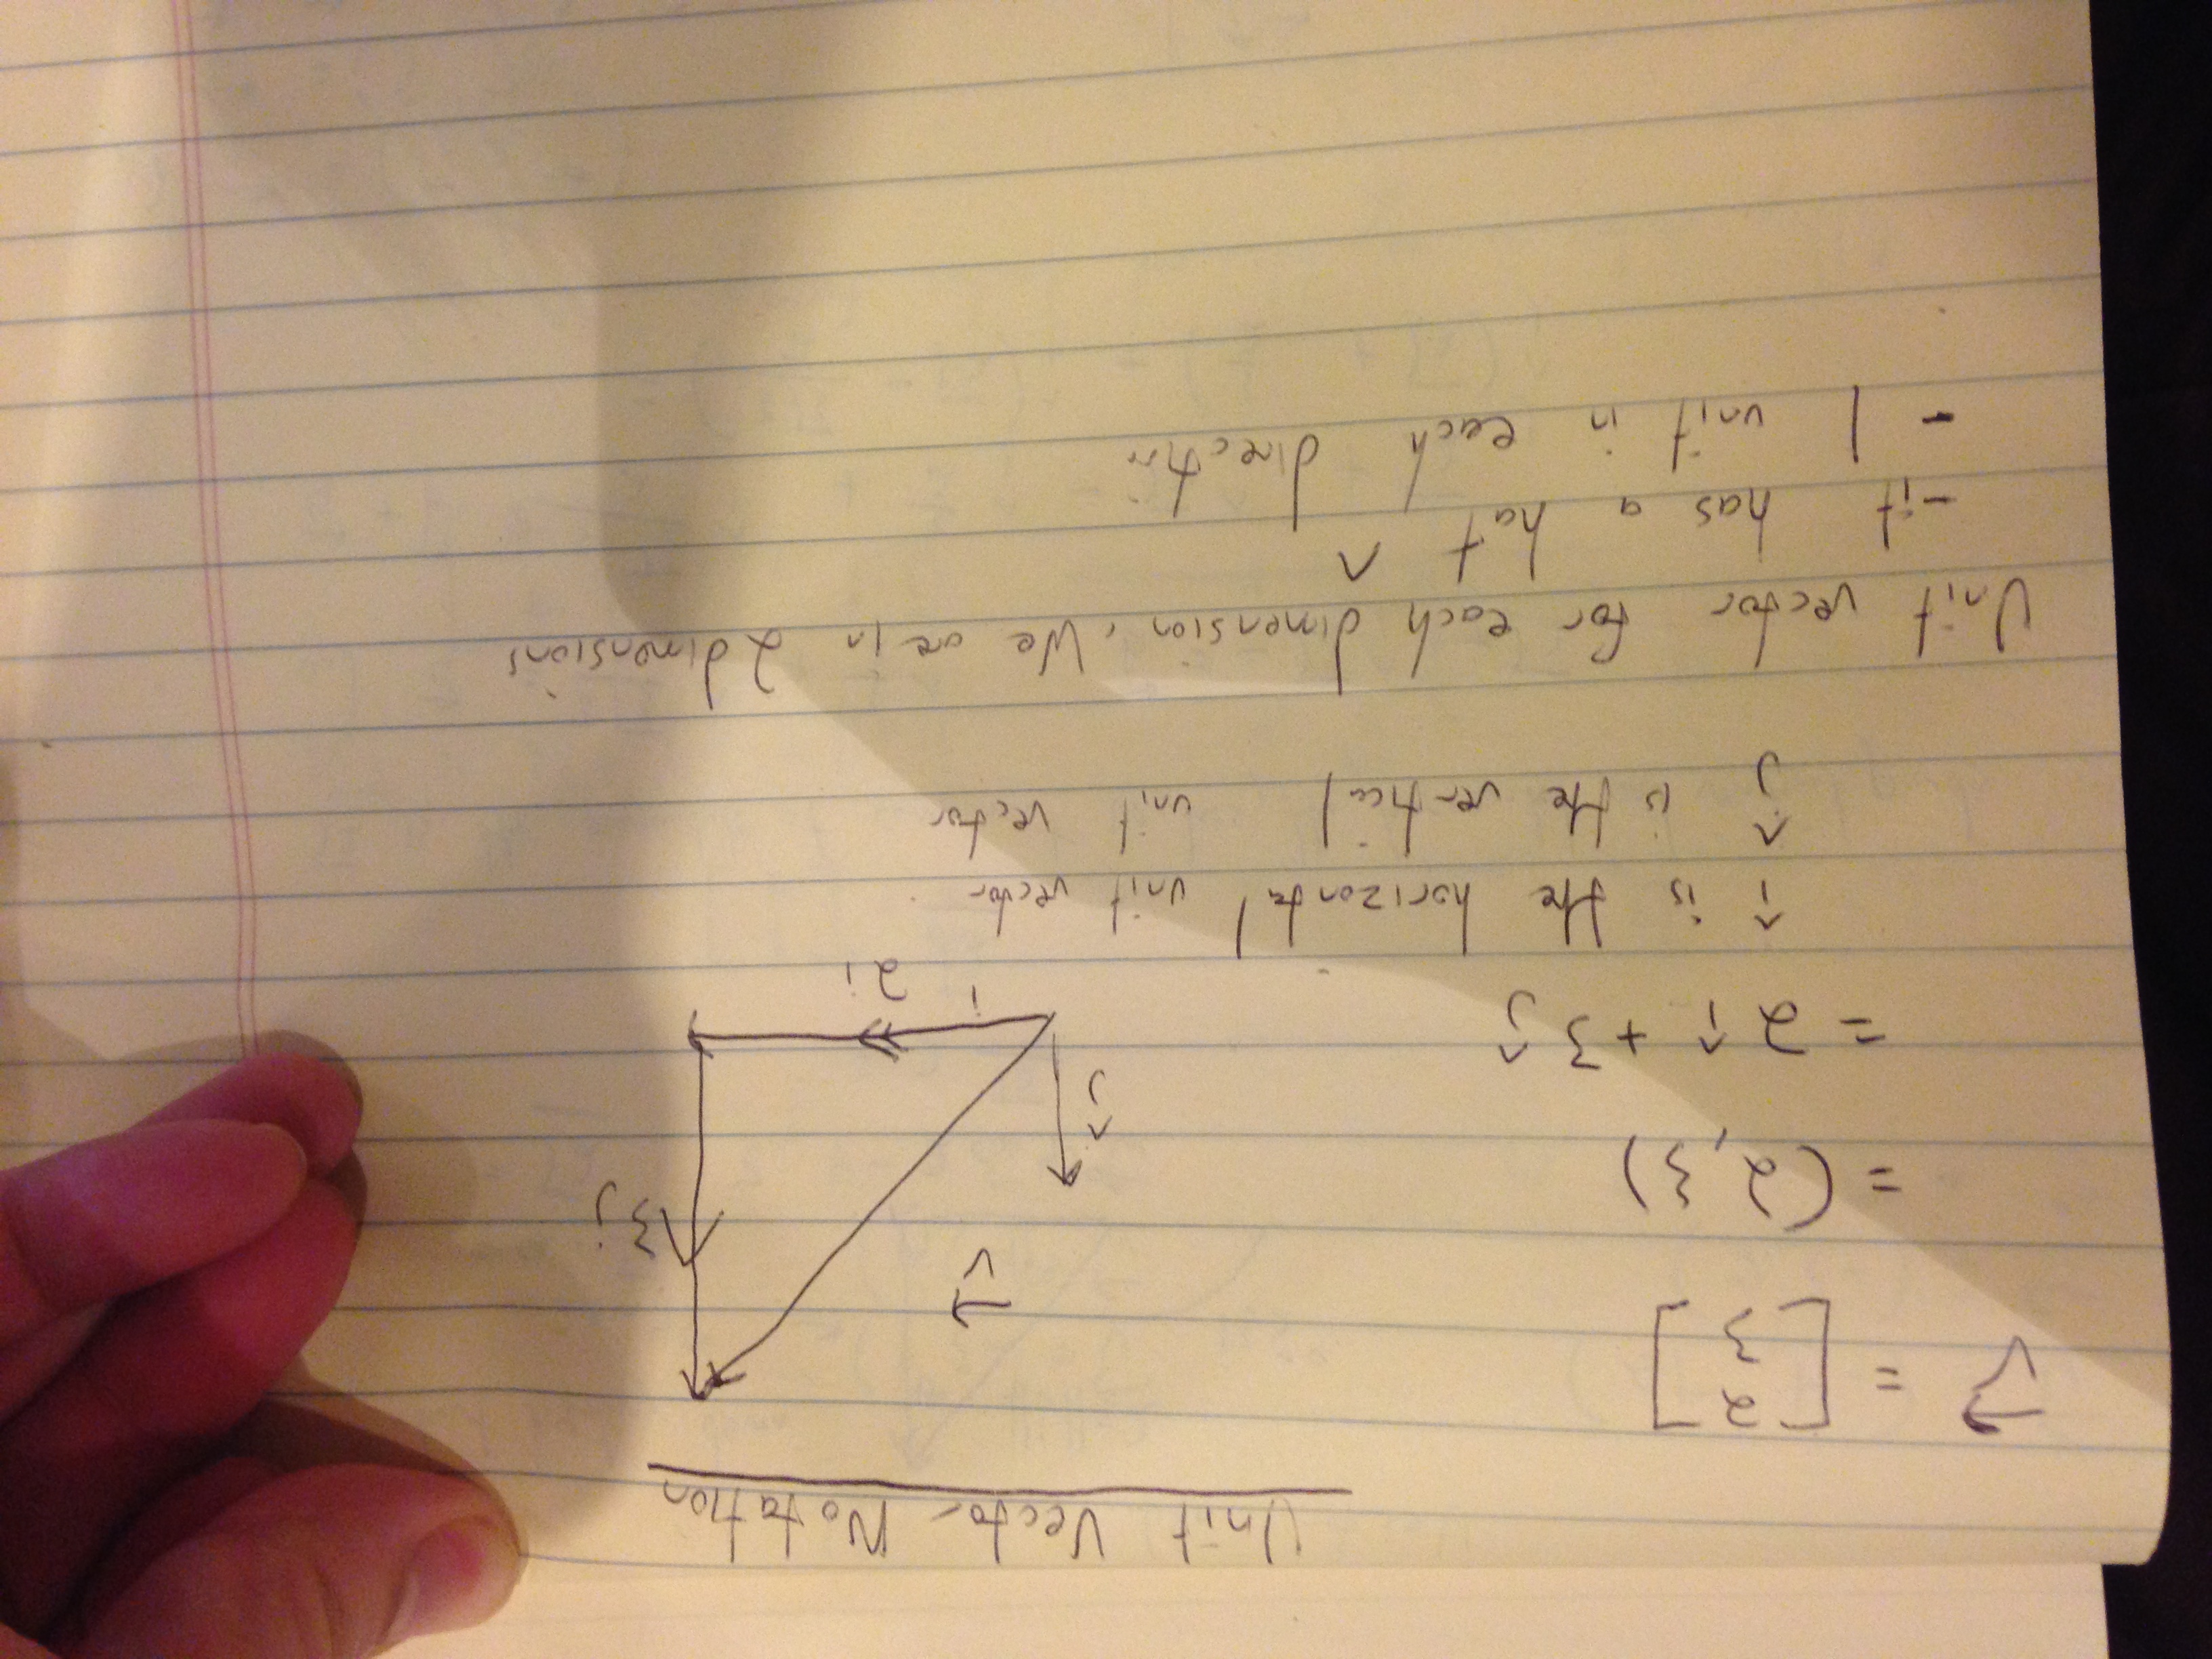 Unit Vector Notation
v⃗ = [2
3]
= (2,3)
= 2î + 3ĵ
v⃗
3j
ĵ
i
2i
î is the horizontal unit vector
ĵ is the vertical unit vector
Unit vector for each dimension. We are in 2 dimensions
- it has a hat ^
- 1 unit in each direction